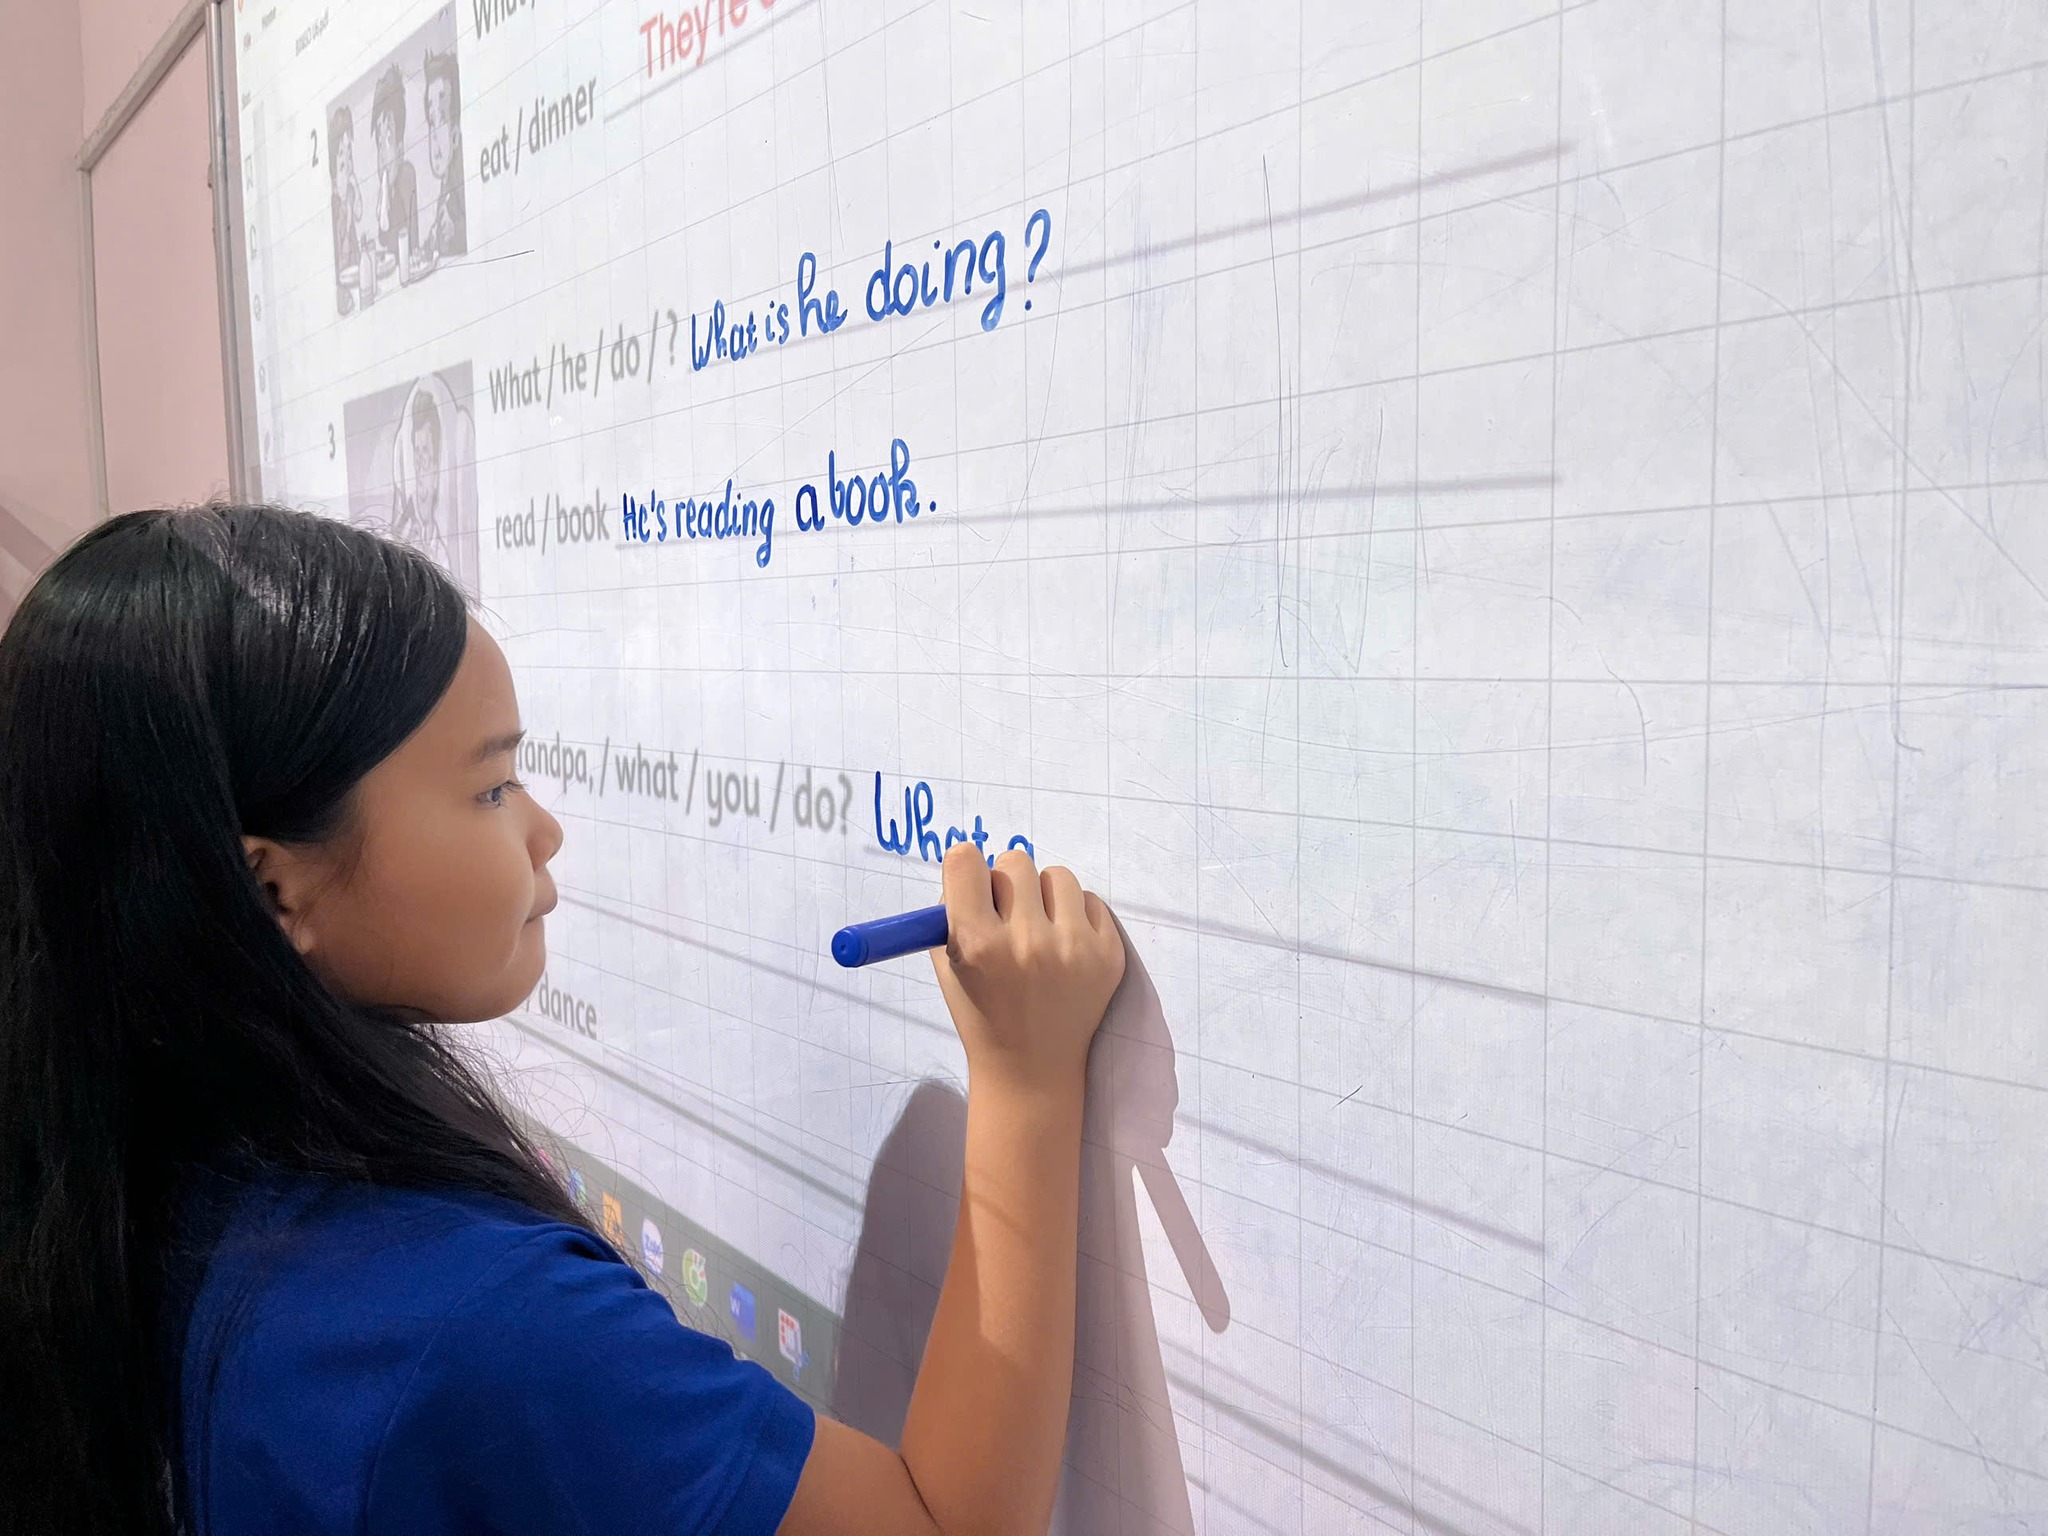 What
They're
2
eat / dinner
What / he / do / ? What is he doing?
3
read / book He's reading a book.
randpa, / what / you / do? What a
/ dance
Zalo
W